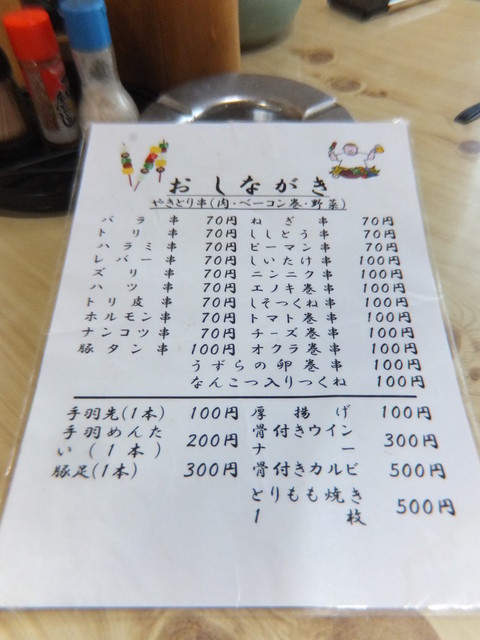 おしながき
やきとり串(肉・ベーコン巻・野菜)
バラ串 70円 ねぎ串 70円
トリ串 70円 ししとう串 70円
ハラミ串 70円 ピーマン串 70円
レバー串 70円 しいたけ串 100円
ズリ串 70円 ニンニク串 100円
ハツ串 70円 エノキ巻串 100円
トリ皮串 70円 しそつくね串 100円
ホルモン串 70円 トマト巻串 100円
ナンコツ串 70円 チーズ巻串 100円
豚タン串 100円 オクラ巻串 100円
うずらの卵巻串 100円
なんこつ入りつくね 100円
手羽先(1本) 100円 厚揚げ 100円
手羽めんたい(1本) 200円 骨付きウインナー 300円
豚足(1本) 300円 骨付きカルビ 500円
とりもも焼き1枚 500円